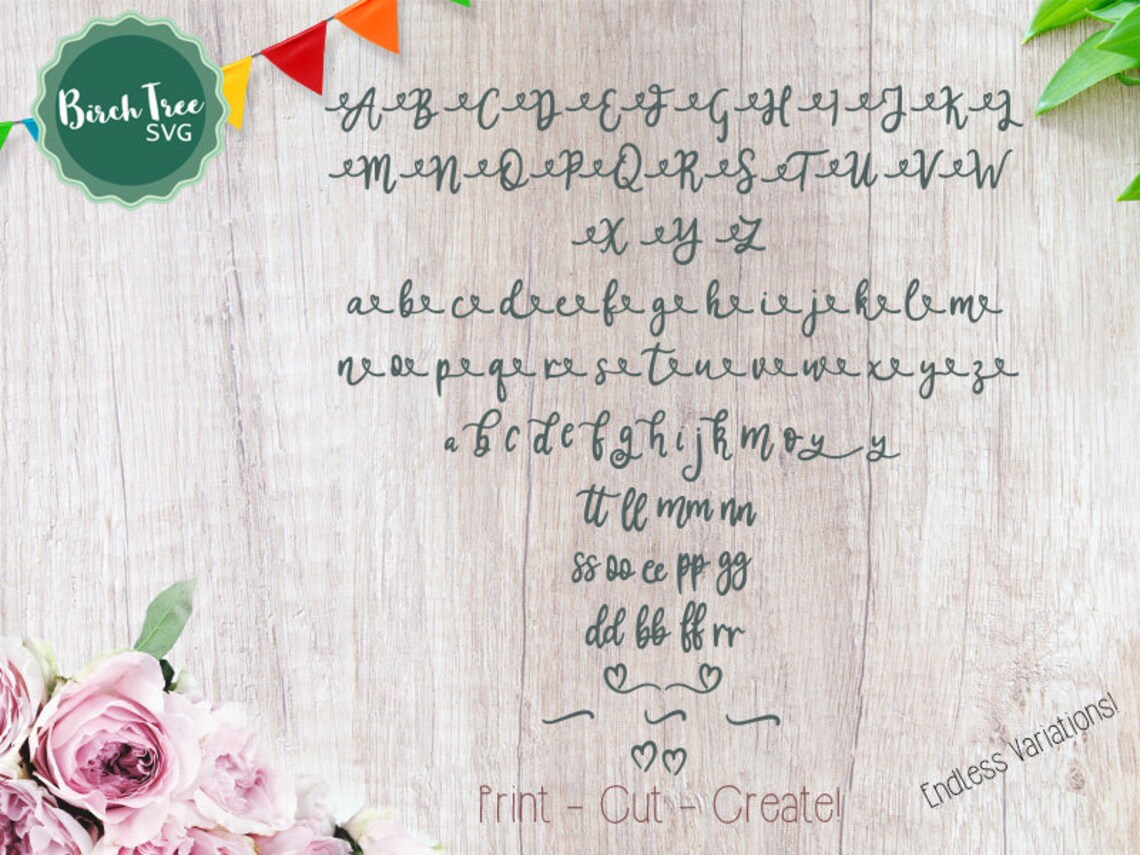 Birch Tree
SVG
A B C D E F G H I J K L
M N O P Q R S T U V W
X Y Z
a b c d e f g h i j k l m
n o p q r s t u v w x y z
a b c d e f g h i j k m o y y
tt ll mm nn
ss oo ee pp gg
dd bb ff rr
Endless Variations!
Print - Cut - Create!